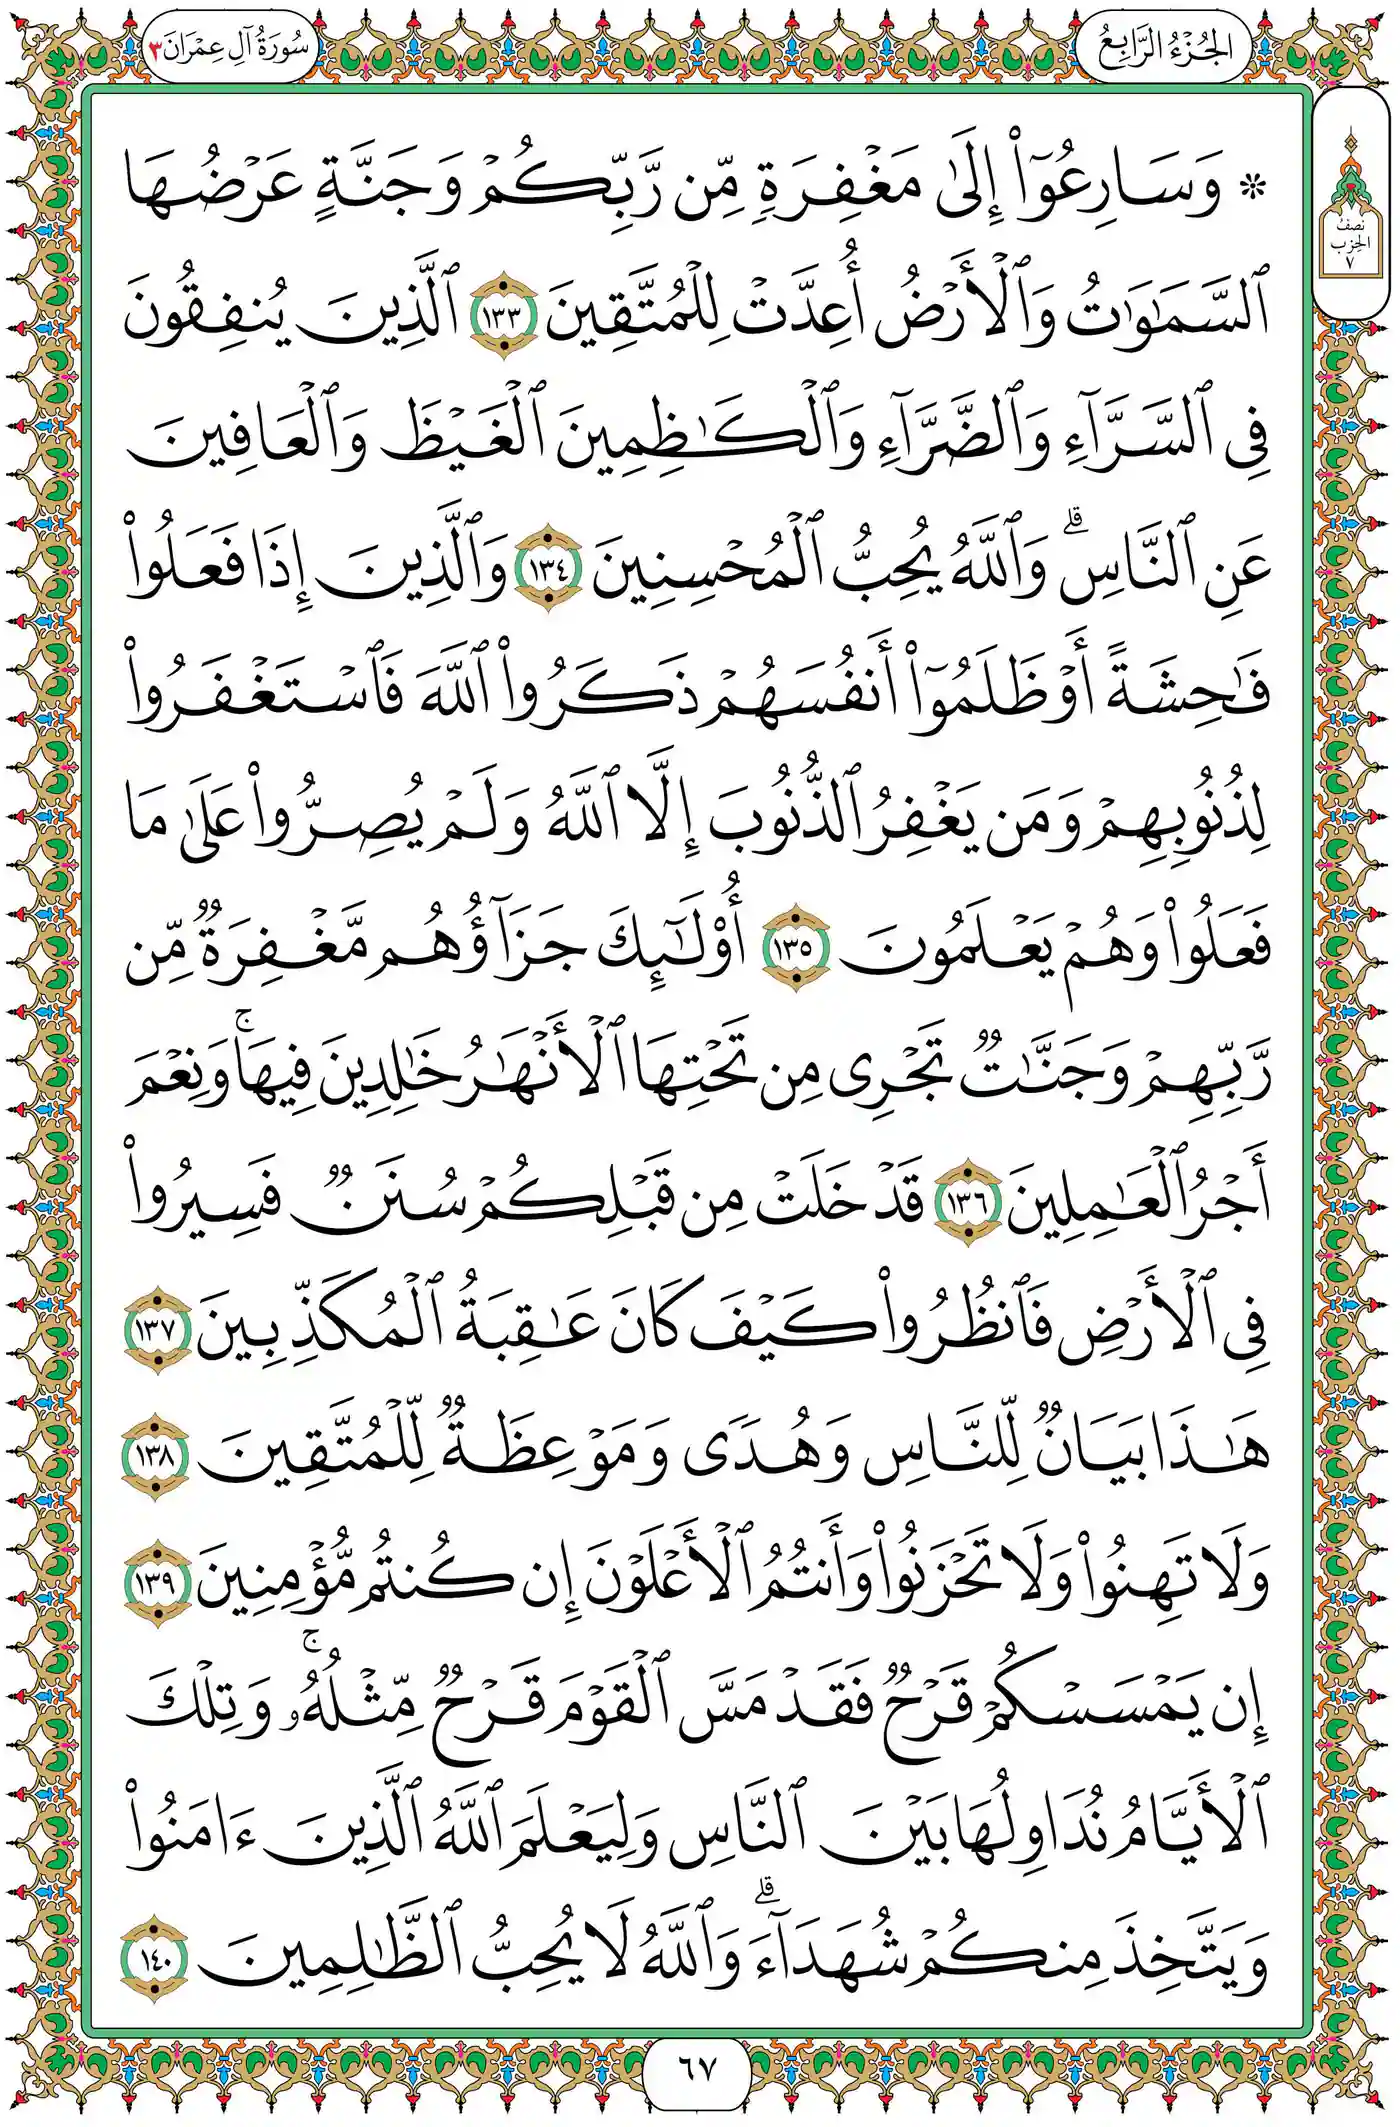 الجُزْءُ الرَّابِعُ
سُورَةُ آلِ عِمْرَانَ ٣
نصف
الحزب
٧
۞ وَسَارِعُوٓا۟ إِلَىٰ مَغْفِرَةٍ مِّن رَّبِّكُمْ وَجَنَّةٍ عَرْضُهَا
ٱلسَّمَـٰوَٰتُ وَٱلْأَرْضُ أُعِدَّتْ لِلْمُتَّقِينَ ١٣٣ ٱلَّذِينَ يُنفِقُونَ
فِى ٱلسَّرَّآءِ وَٱلضَّرَّآءِ وَٱلْكَـٰظِمِينَ ٱلْغَيْظَ وَٱلْعَافِينَ
عَنِ ٱلنَّاسِ ۗ وَٱللَّهُ يُحِبُّ ٱلْمُحْسِنِينَ ١٣٤ وَٱلَّذِينَ إِذَا فَعَلُوا۟
فَـٰحِشَةً أَوْ ظَلَمُوٓا۟ أَنفُسَهُمْ ذَكَرُوا۟ ٱللَّهَ فَٱسْتَغْفَرُوا۟
لِذُنُوبِهِمْ وَمَن يَغْفِرُ ٱلذُّنُوبَ إِلَّا ٱللَّهُ وَلَمْ يُصِرُّوا۟ عَلَىٰ مَا
فَعَلُوا۟ وَهُمْ يَعْلَمُونَ ١٣٥ أُو۟لَـٰٓئِكَ جَزَآؤُهُم مَّغْفِرَةٌ مِّن
رَّبِّهِمْ وَجَنَّـٰتٌ تَجْرِى مِن تَحْتِهَا ٱلْأَنْهَـٰرُ خَـٰلِدِينَ فِيهَا ۚ وَنِعْمَ
أَجْرُ ٱلْعَـٰمِلِينَ ١٣٦ قَدْ خَلَتْ مِن قَبْلِكُمْ سُنَنٌ فَسِيرُوا۟
فِى ٱلْأَرْضِ فَٱنظُرُوا۟ كَيْفَ كَانَ عَـٰقِبَةُ ٱلْمُكَذِّبِينَ ١٣٧
هَـٰذَا بَيَانٌ لِّلنَّاسِ وَهُدًى وَمَوْعِظَةٌ لِّلْمُتَّقِينَ ١٣٨
وَلَا تَهِنُوا۟ وَلَا تَحْزَنُوا۟ وَأَنتُمُ ٱلْأَعْلَوْنَ إِن كُنتُم مُّؤْمِنِينَ ١٣٩
إِن يَمْسَسْكُمْ قَرْحٌ فَقَدْ مَسَّ ٱلْقَوْمَ قَرْحٌ مِّثْلُهُۥ ۚ وَتِلْكَ
ٱلْأَيَّامُ نُدَاوِلُهَا بَيْنَ ٱلنَّاسِ وَلِيَعْلَمَ ٱللَّهُ ٱلَّذِينَ ءَامَنُوا۟
وَيَتَّخِذَ مِنكُمْ شُهَدَآءَ ۗ وَٱللَّهُ لَا يُحِبُّ ٱلظَّـٰلِمِينَ ١٤٠
٦٧